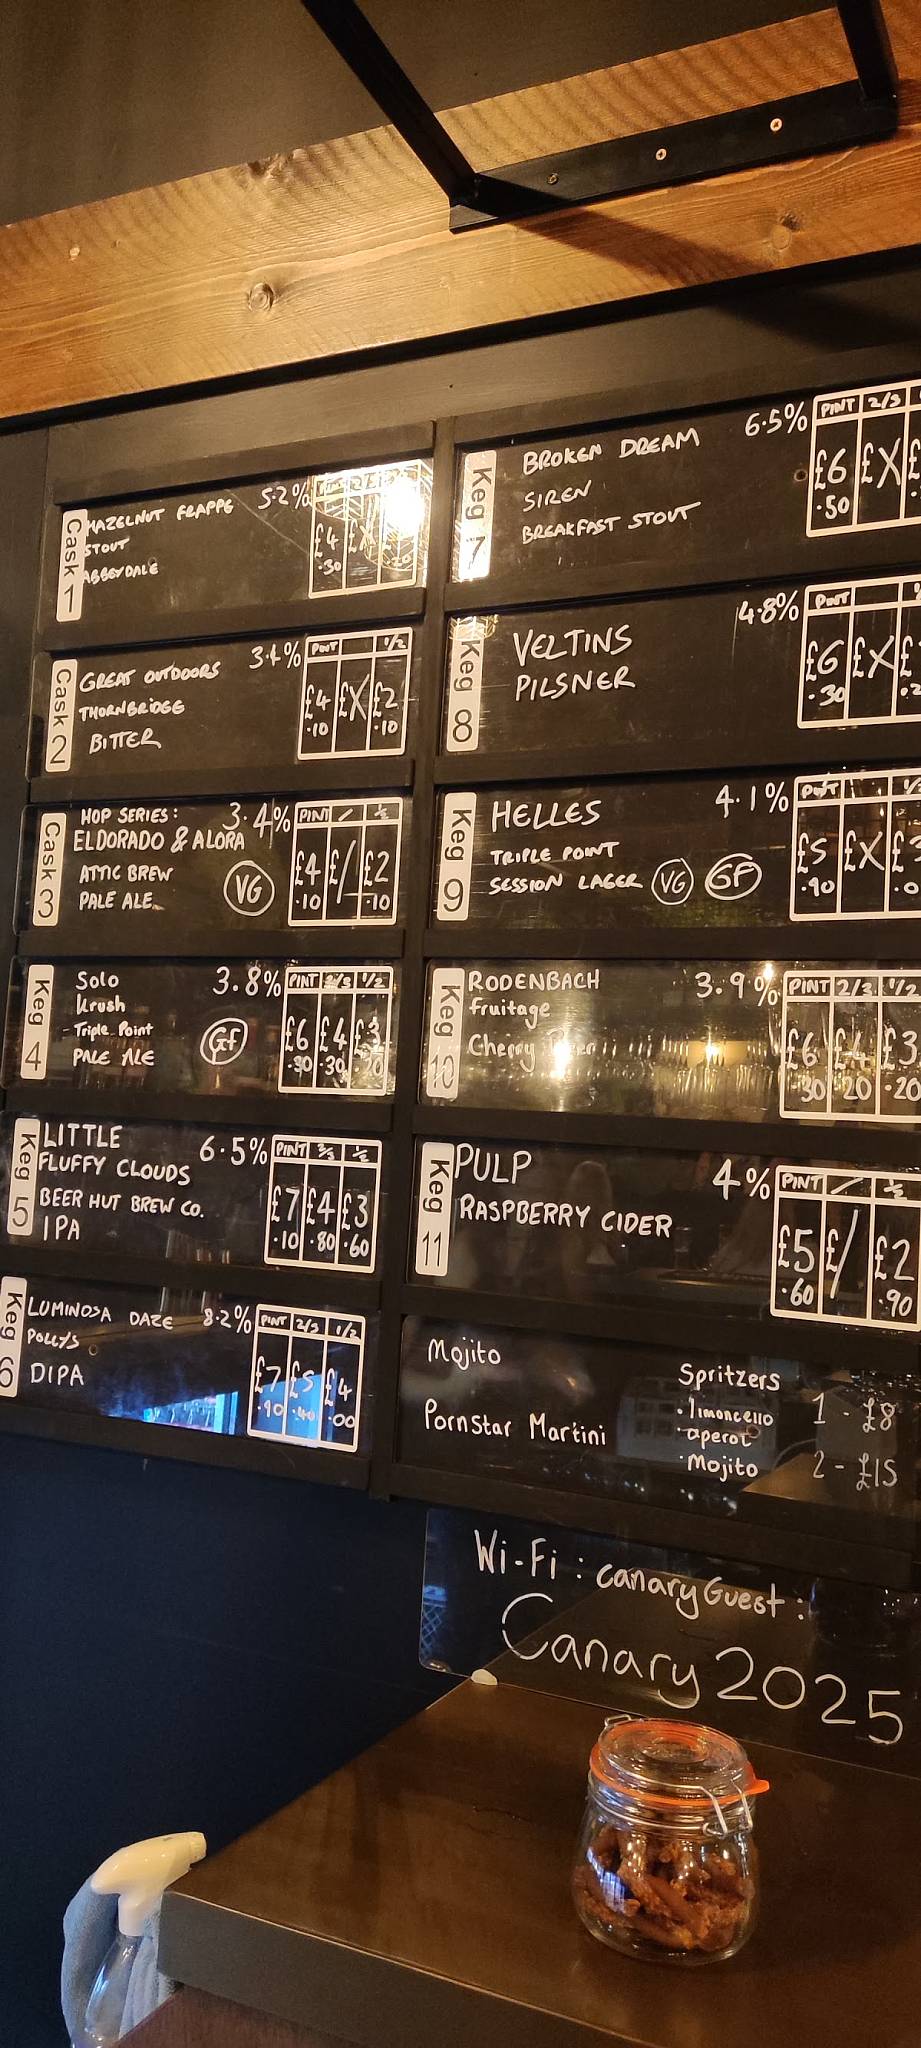 Cask 1
HAZELNUT FRAPPE 5.2%
STOUT
ABBEYDALE
PINT
£4 £X
.30 .20
Cask 2
GREAT OUTDOORS 3.4%
THORNBRIDGE
BITTER
PINT 1/2
£4 £X £2
.10 .10
Cask 3
HOP SERIES: 3.4%
ELDORADO & ALORA
ATTIC BREW
PALE ALE
VG
PINT / ½
£4 £/ £2
.10 .10
Keg 4
Solo 3.8%
Krush
Triple Point
PALE ALE
GF
PINT 2/3 1/2
£6 £4 £3
.30 .30 .20
Keg 5
LITTLE 6.5%
FLUFFY CLOUDS
BEER HUT BREW CO.
IPA
PINT ⅔ ½
£7 £4 £3
.10 .80 .60
Keg 6
LUMINOSA DAZE 8.2%
POLLYS
DIPA
PINT 2/3 1/2
£7 £5 £4
.90 .40 .00
Keg 7
BROKEN DREAM 6.5%
SIREN
BREAKFAST STOUT
PINT 2/3
£6 £X £
.50
Keg 8
VELTINS 4.8%
PILSNER
PINT
£6 £X £
.30
Keg 9
HELLES 4.1%
TRIPLE POINT
SESSION LAGER VG GF
PINT
£5 £X £
.90
Keg 10
RODENBACH 3.9%
fruitage
Cherry Beer
PINT 2/3 1/2
£6 £4 £3
.30 .20 .20
Keg 11
PULP 4%
RASPBERRY CIDER
PINT / ½
£5 £/ £2
.60 .90
Mojito
Pornstar Martini
Spritzers
· limoncello
· aperol
· Mojito
1 - £8
2 - £15
Wi-Fi : canaryGuest :
Canary2025